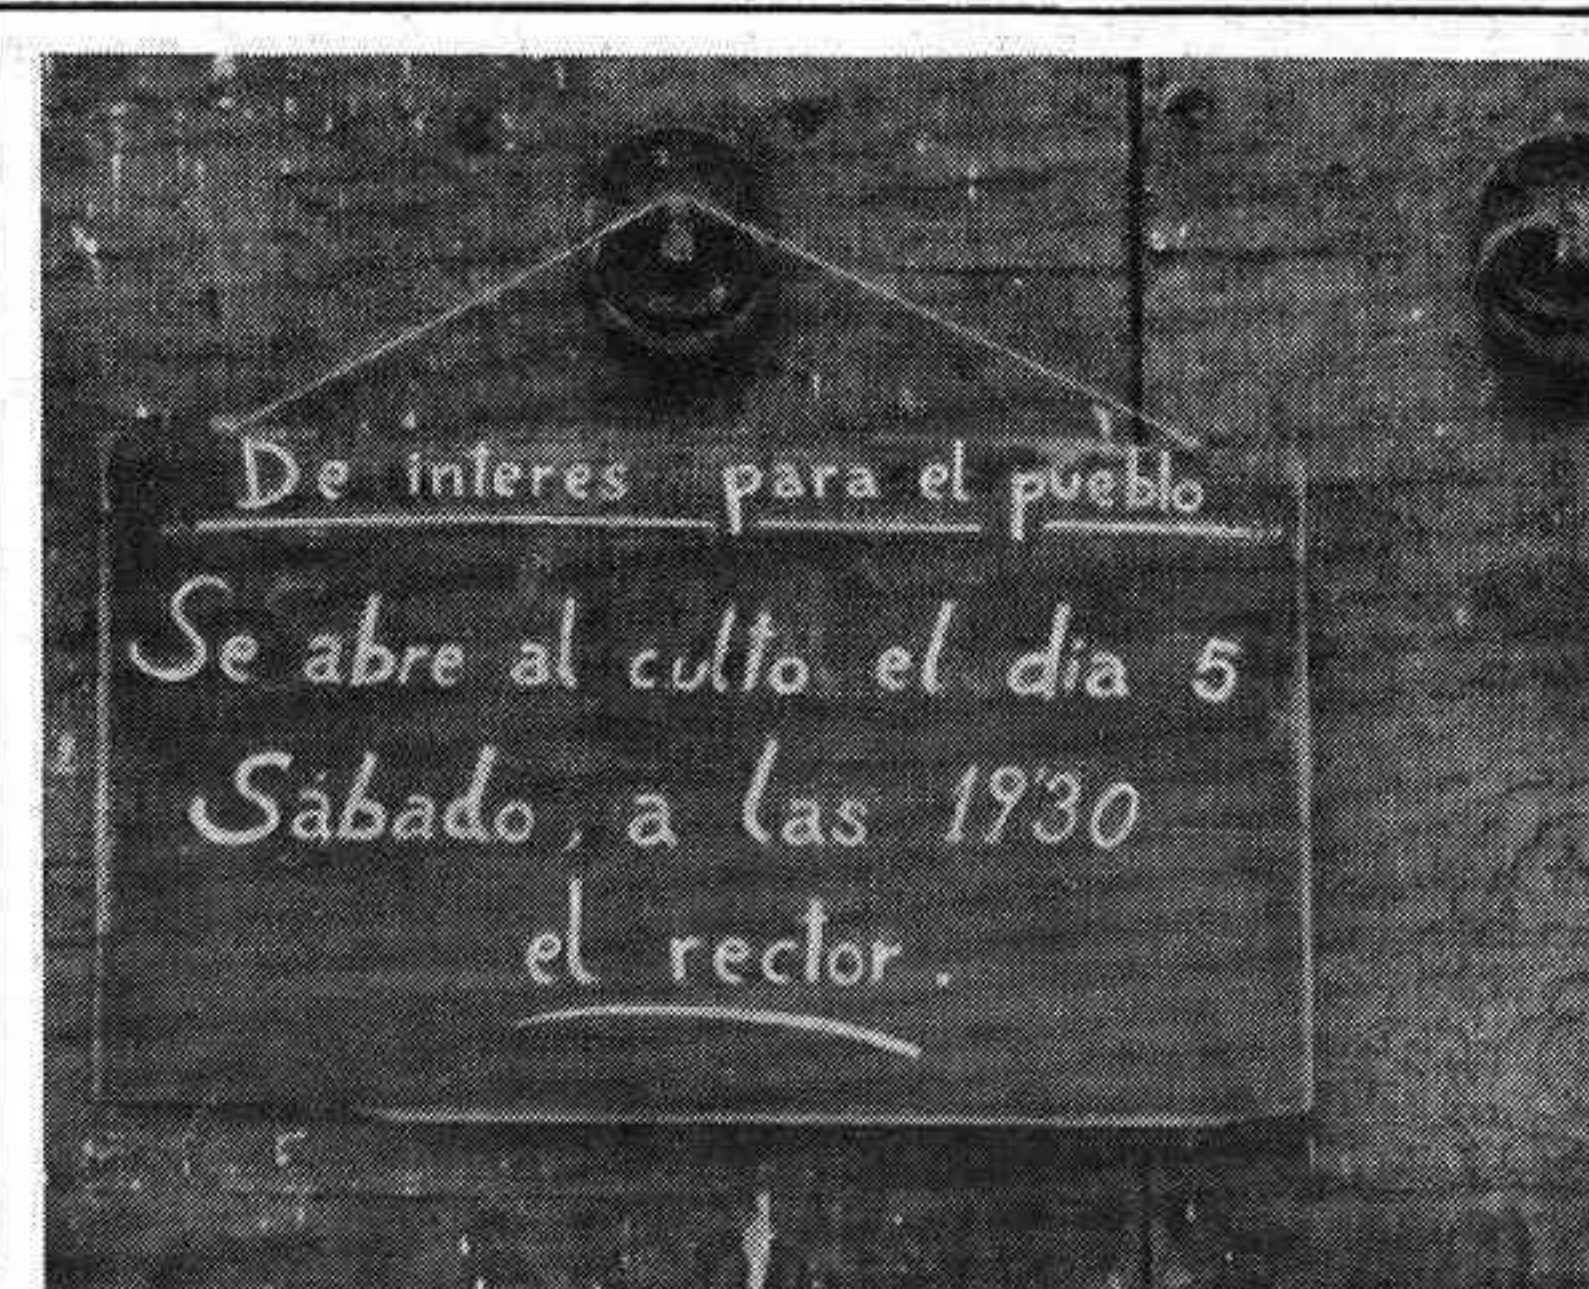 De interes para el pueblo
Se abre al culto el dia 5
Sábado, a las 19'30
el rector.